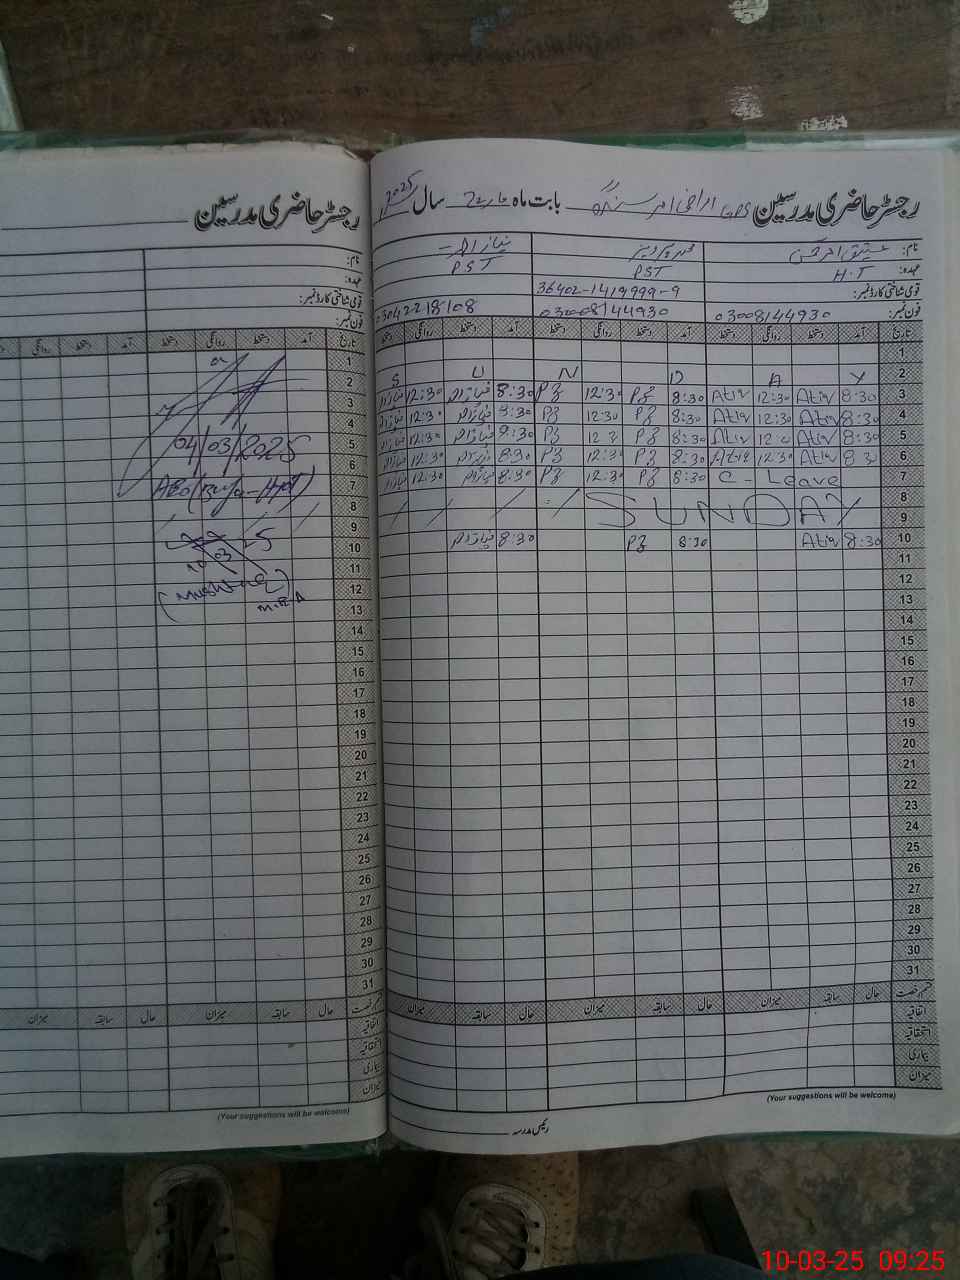 رجسٹر حاضری مدرسین GPS اراضی امر سنگھ بابت ماہ مارچ سال 2025
نام: عتیق الرحمٰن
محمد پرویز
نیاز احمد
عہدہ: H.T
PST
PST
قومی شناختی کارڈ نمبر:
36402-1419999-9
فون نمبر: 03008144930
03008144930
تاریخ آمد دستخط روانگی دستخط آمد دستخط روانگی دستخط آمد دستخط روانگی دستخط
1
2 S U N D A Y
3 8:30 Atiq 12:30 Atiq 8:30 12:30 8:30 12:30
4 8:30 Atiq 12:30 Atiq 8:30 12:30 8:30 12:30
5 8:30 Atiq Atiq 8:30 8:30 12:30
6 8:30 Atiq 12:30 Atiq 8:30 12:30 8:30 12:30
7 C - Leave 8:30 12:30 8:30 12:30
8
9 SUNDAY
10 8:30 Atiq 8:30 8:30
11
12
13
14
15
16
17
18
19
20
21
22
23
24
25
26
27
28
29
30
31
قسم رخصت حال سابقہ میزان حال سابقہ میزان حال سابقہ میزان
اتفاقیہ
استحقاقیہ
بیماری
میزان
(Your suggestions will be welcome)
رئیس مدرسہ
رجسٹر حاضری مدرسین
نام:
عہدہ:
قومی شناختی کارڈ نمبر:
فون نمبر:
تاریخ آمد دستخط روانگی دستخط آمد دستخط روانگی
1
2
3
4
5 04/03/2025
6
7
8
9
10
11
12
13 M.E.A
14
15
16
17
18
19
20
21
22
23
24
25
26
27
28
29
30
31
قسم رخصت حال سابقہ میزان حال سابقہ میزان
اتفاقیہ
استحقاقیہ
بیماری
میزان
(Your suggestions will be welcome)
10-03-25 09:25